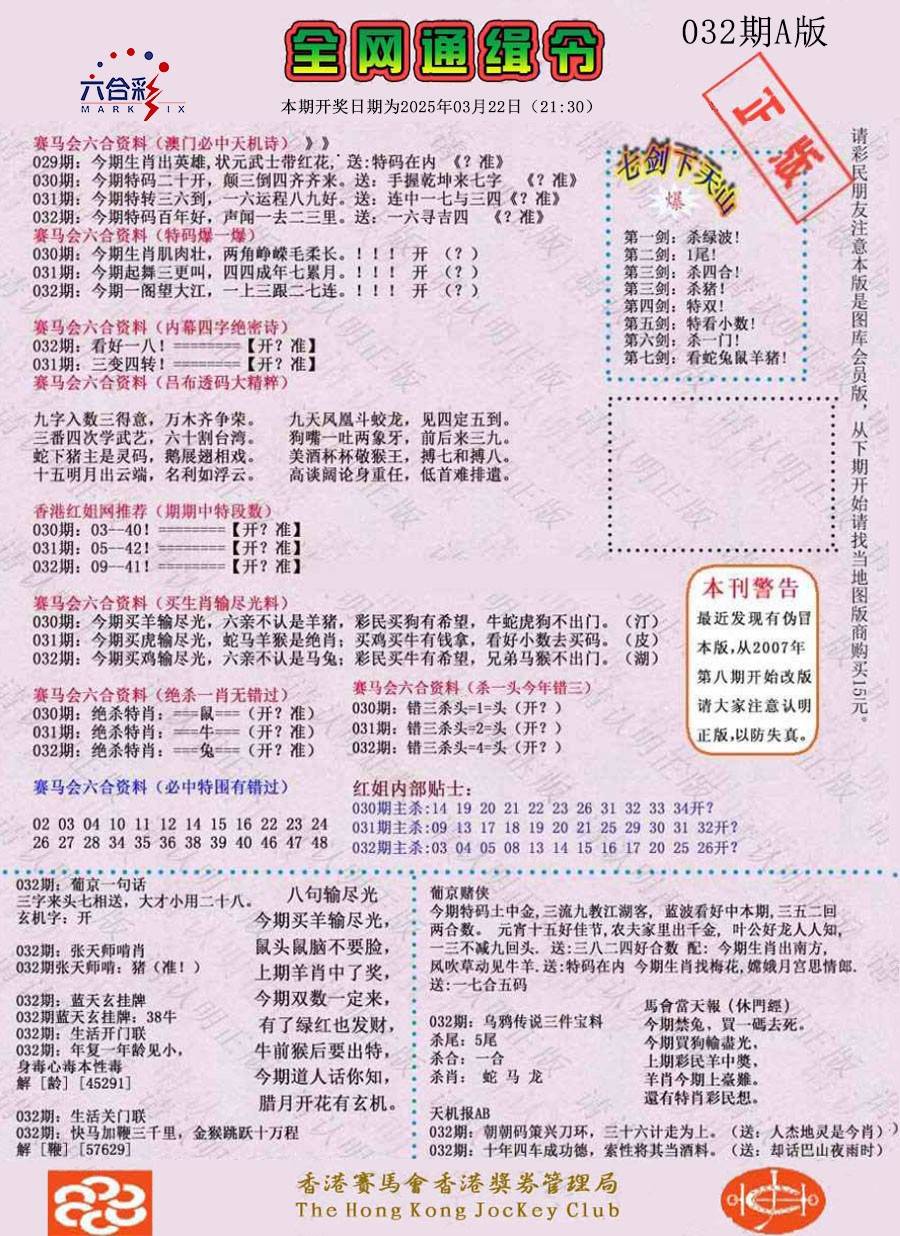 032期A版
全网通缉令
六合彩
MARK SIX
本期开奖日期为2025年03月22日（21:30）
正版
赛马会六合资料（澳门必中天机诗）》》
029期：今期生肖出英雄,状元武士带红花,送:特码在内 《？准》
030期：今期特码二十开，颠三倒四齐齐来。送：手握乾坤来七字 《？准》
031期：今期特转三六到，一六运程八九好。送：连中一七与三四《？准》
032期：今期特码百年好，声闻一去二三里。送：一六寻吉四 《？准》
赛马会六合资料（特码爆一爆）
030期：今期生肖肌肉壮，两角峥嵘毛柔长。！！！ 开 （？）
031期：今期起舞三更叫，四四成年七累月。！！！ 开 （？）
032期：今期一阁望大江，一上三跟二七连。！！！ 开 （？）
赛马会六合资料（内幕四字绝密诗）
032期：看好一八！========【开？准】
031期：三变四转！========【开？准】
赛马会六合资料（吕布透码大精粹）
九字入数三得意，万木齐争荣。 九天凤凰斗蛟龙，见四定五到。
三番四次学武艺，六十割台湾。 狗嘴一吐两象牙，前后来三九。
蛇下猪主是灵码，鹅展翅相戏。 美酒杯杯敬猴王，搏七和搏八。
十五明月出云端，名利如浮云。 高谈阔论身重任，低首难排遣。
七剑下天山
爆
第一剑：杀绿波！
第二剑：1尾！
第三剑：杀四合！
第三剑：杀猪！
第四剑：特双！
第五剑：特看小数！
第六剑：杀一门！
第七剑：看蛇兔鼠羊猪！
请彩民朋友注意本版是图库会员版，从下期开始请找当地图版商购买15元。
香港红姐网推荐（期期中特段数）
030期：03--40！========【开？准】
031期：05--42！========【开？准】
032期：09--41！========【开？准】
赛马会六合资料（买生肖输尽光料）
030期：今期买羊输尽光，六亲不认是羊猪，彩民买狗有希望，牛蛇虎狗不出门。（汀）
031期：今期买虎输尽光，蛇马羊猴是绝肖；买鸡买牛有钱拿，看好小数去买码。（皮）
032期：今期买鸡输尽光，六亲不认是马兔；彩民买牛有希望，兄弟马猴不出门。（湖）
本刊警告
最近发现有伪冒
本版,从2007年
第八期开始改版
请大家注意认明
正版,以防失真。
赛马会六合资料（绝杀一肖无错过）
030期：绝杀特肖：===鼠===（开？准）
031期：绝杀特肖：===牛===（开？准）
032期：绝杀特肖：===兔===（开？准）
赛马会六合资料（杀一头今年错三）
030期：错三杀头=1=头（开？）
031期：错三杀头=2=头（开？）
032期：错三杀头=4=头（开？）
赛马会六合资料（必中特围有错过）
02 03 04 10 11 12 14 15 16 22 23 24
26 27 28 34 35 36 38 39 40 46 47 48
红姐内部贴士：
030期主杀:14 19 20 21 22 23 26 31 32 33 34开？
031期主杀:09 13 17 18 19 20 21 25 29 30 31 32开？
032期主杀:03 04 05 08 13 14 15 16 17 20 25 26开？
032期：葡京一句话
三字来头七相送，大才小用二十八。
玄机字：开
032期：张天师啃肖
032期张天师啃：猪（准！）
032期：蓝天玄挂牌
032期蓝天玄挂牌：38牛
032期：生活开门联
032期：年复一年龄见小，
身毒心毒本性毒
解 [龄] [45291]
032期：生活关门联
032期：快马加鞭三千里，金猴跳跃十万程
解 [鞭] [57629]
八句输尽光
今期买羊输尽光，
鼠头鼠脑不要脸，
上期羊肖中了奖，
今期双数一定来，
有了绿红也发财，
牛前猴后要出特，
今期道人话你知，
腊月开花有玄机。
葡京赌侠
今期特码土中金,三流九教江湖客，蓝波看好中本期,三五二回
两合数。 元宵十五好佳节,农夫家里出千金，叶公好龙人人知,
一三不减九回头．送:三八二四好合数 配：今期生肖出南方,
风吹草动见牛羊．送:特码在内 今期生肖找梅花,嫦娥月宫思情郎．
送:一七合五码
032期：乌鸦传说三件宝料
杀尾：5尾
杀合：一合
杀肖： 蛇 马 龙
馬會當天報（休門經）
今期禁兔，買一碼去死。
今期買狗輸盡光，
上期彩民羊中獎，
羊肖今期上臺難。
還有特肖彩民想。
天机报AB
032期：朝朝码策兴刀环，三十六计走为上。（送：人杰地灵是今肖）
032期：十年四车成功德，索性将其当酒料。（送：却话巴山夜雨时）
香港賽馬會香港獎券管理局
The Hong Kong JocKey Club